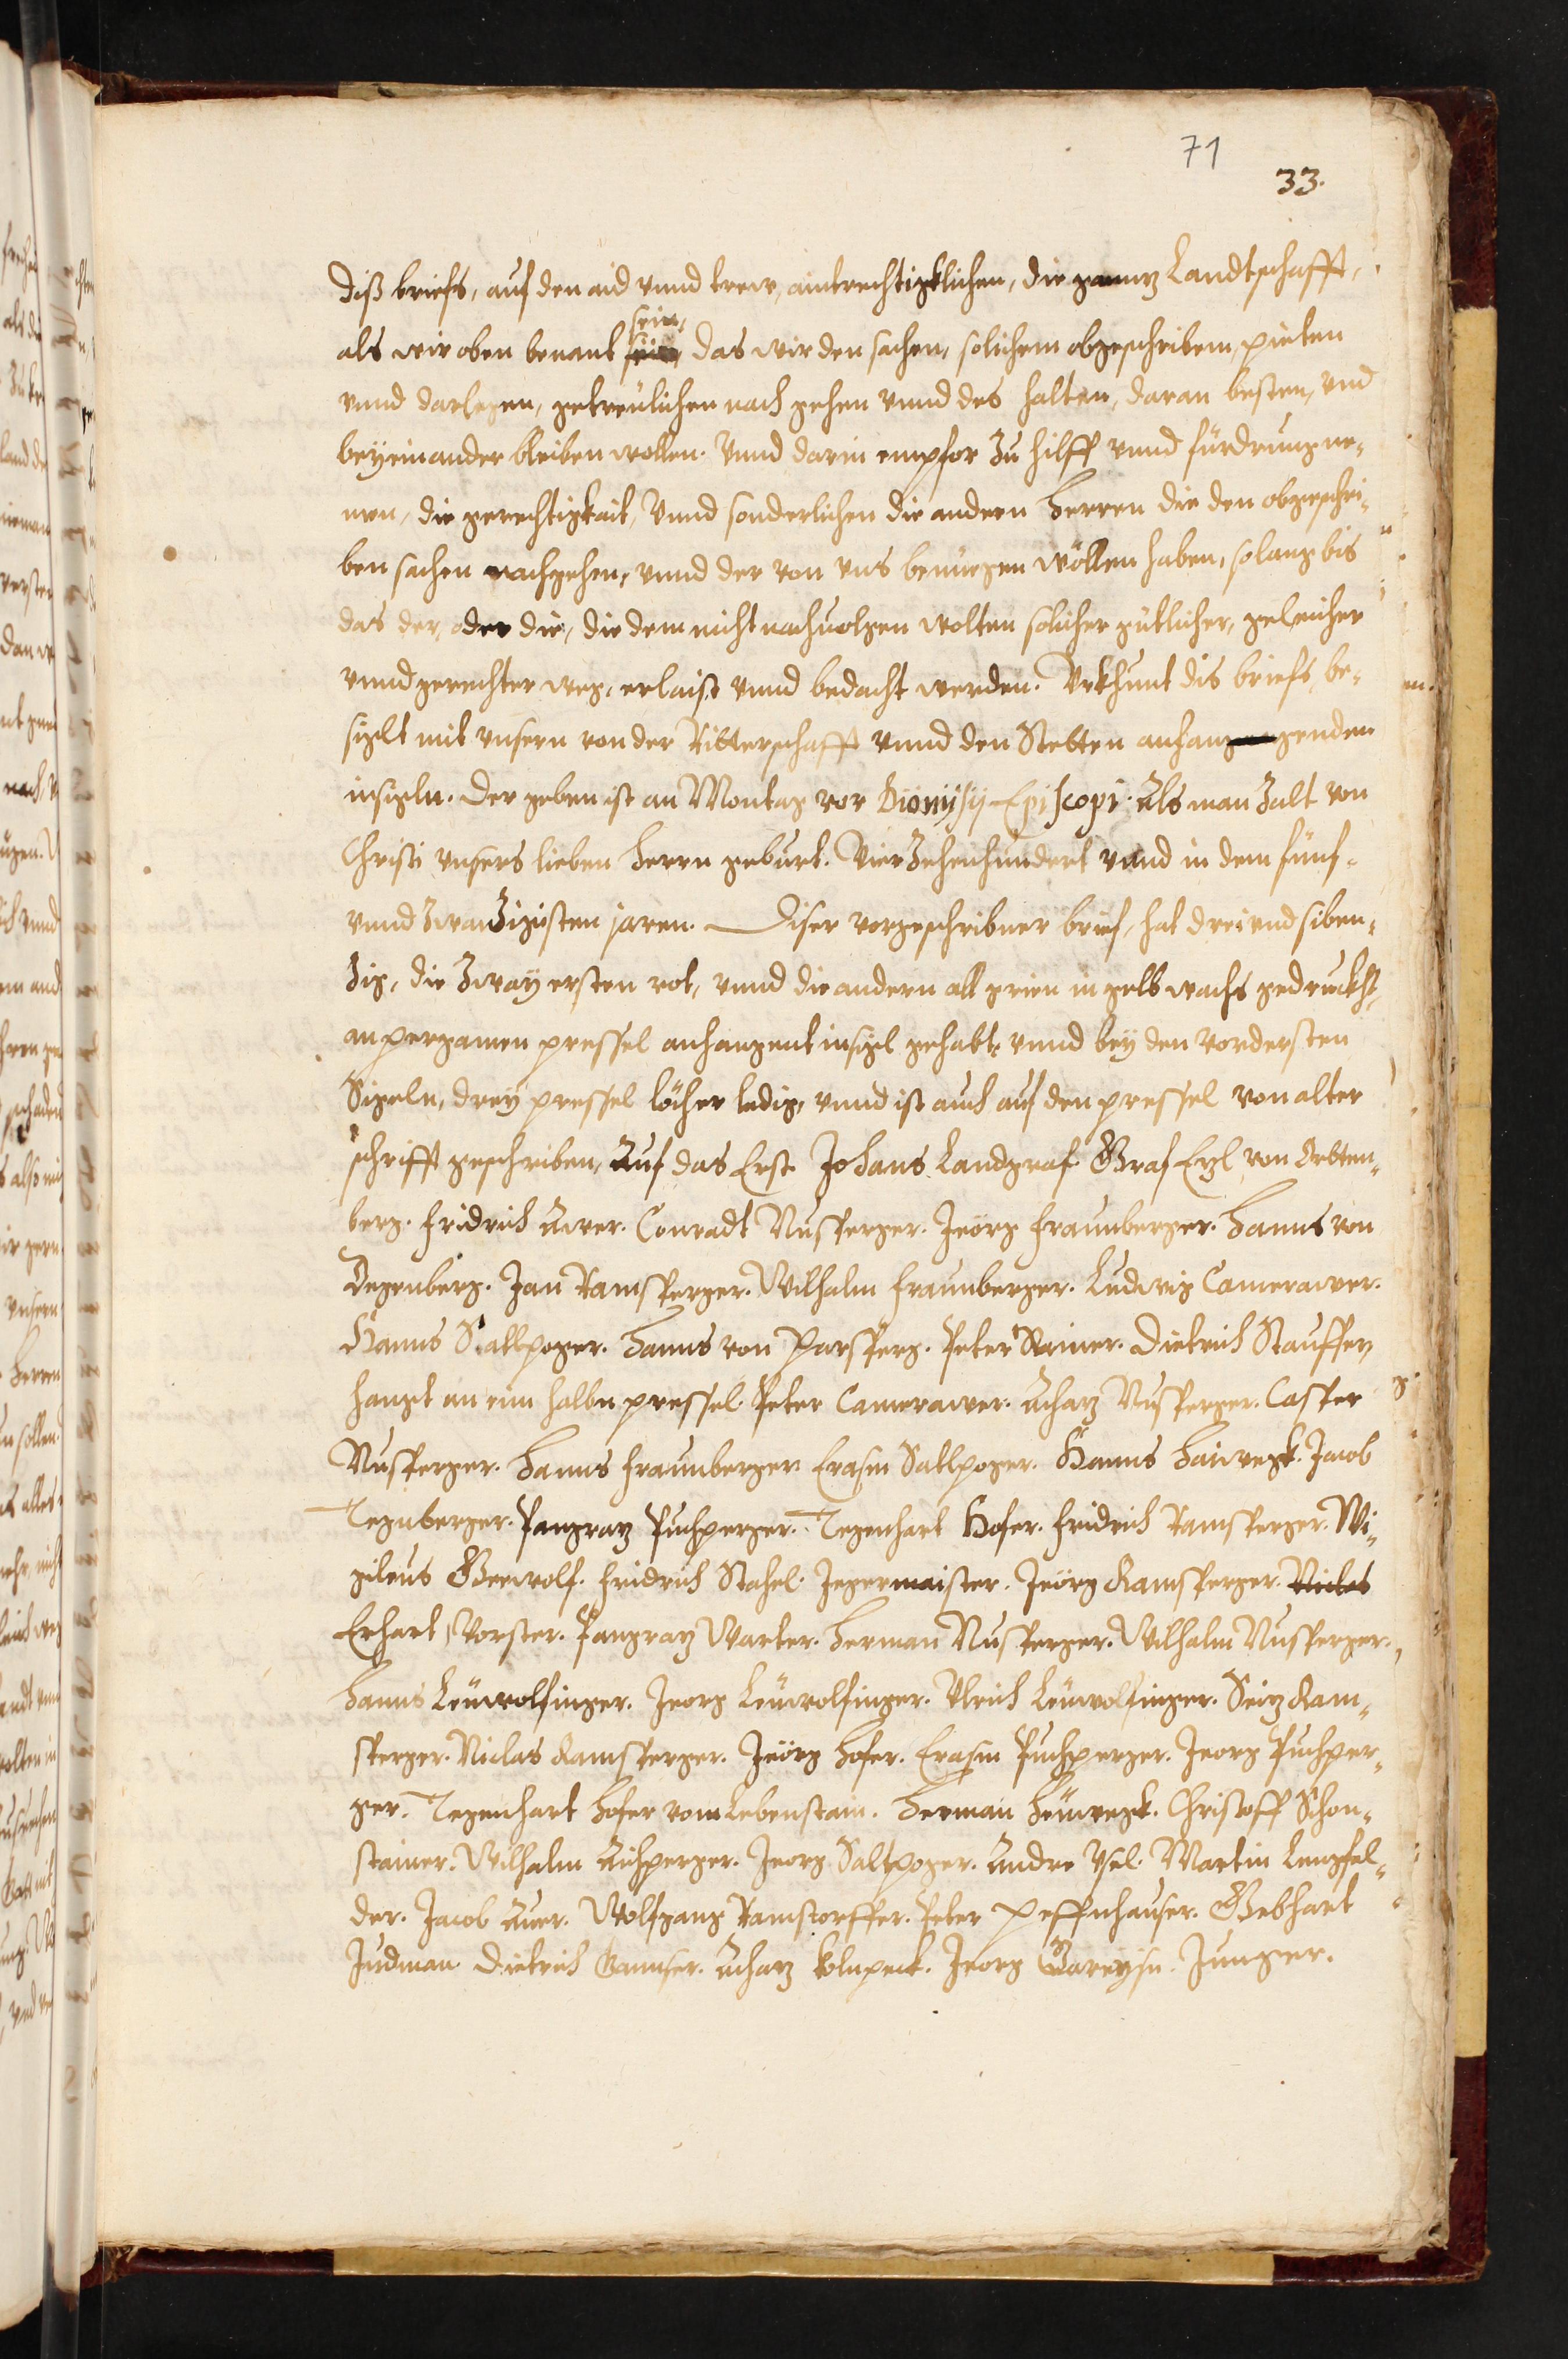 71
33.
diß briefs, auf den aid vnnd trew, aintrechtigklichen, die gannz Landtschafft,
als wir oben benant sein, das wir den sachen, solichem obgeschribem, pieten
sein,
vnnd darlegen, getreulichen nach gehen vnnd des halten, daran besten, vnd
beyeinander bleiben wollen. Vnnd darin empfor zu hilff vnnd fürdrung ne-
men, die gerechtigkait, Vnnd sonderlichen die andern Herren die den obgeschri-
ben sachen nachgehen, vnnd der von vns benuegen wöllen haben, solang bis
das der, oder die, die dem nicht nachuolgen wolten solicher gütlicher, geleicher
vnnd gerechter weg, erlaist vnnd bedacht werden. Vrkhunt dis briefs, be-
siglt mit vnsern von der Ritterschafft vnnd den Stetten anhanngenden
insigeln. Der geben ist an Montag vor Dionysij Episcopi. Als man zalt von
Christi vnsers lieben herrn geburt. Vierzehenhundert vnnd in dem fünf-
vnnd zwaizigisten jaren. Diser vorgeschribner brief, hat drei vnd siben-
zig, die zway ersten rot, vnnd die andern all grien in gelb wachs gedruckht,
an pergamen pressel anhangent insigel gehabt, vnnd bey den vordersten
Sigeln, drey pressel löcher ledig, vnnd ist auch auf den pressel von alter
schrifft geschriben, Auf das Erst. Johans Landgraf. Graf Ezl von Ortten-
berg. fridrich Awer. Conradt Nusperger. Jeörg fraunberger. Hanns von
Degenberg. Jan Ramsperger. Wilhalm fraunberger. Ludwig Camerawer.
Hanns Satlpoger. Hanns von Parsperg. Peter Rainer. Dietrich Stauffer,
hangt an eim halbn pressel. Peter Camerawer. Achaz Nusperger. Casper
Nusperger. Hanns fraunberger. Erasm Satlpoger. Hanns Haiwegk. Jacob
Degnberger. Pangraz Puchperger. Degenhart Hofer. fridrich Ramsperger. Wi-
gileus Geewolf. fridrich Stahel. Jegermaister. Jeörg Ramsperger. Niclas
Erhart Vorster. Pangraz Warter. Herman Nusperger. Wilhalm Nusperger.
Hanns Leuwolfinger. Jeorg Leuwolfinger. Vlrich Leuwolfinger. Seiz Ram-
sperger. Niclas Ramsperger. Jeörg Hofer. Erasm Puchperger. Jeorg Puchper-
ger. Degenhart Hofer vom Lebenstain. Herman Heuwegk. Christoff Schon-
stainer. Wilhalm Aichperger. Jeorg Saltpoger. Andre Vsel. Martin Lengfel-
der. Jacob Auer. Wolfgang Ramstorffer. Peter Peffnhauser. Gebhart
Judman. Dietrich Gamser. Achaz Kolnpeck. Jeorg Pareysn. Junger.